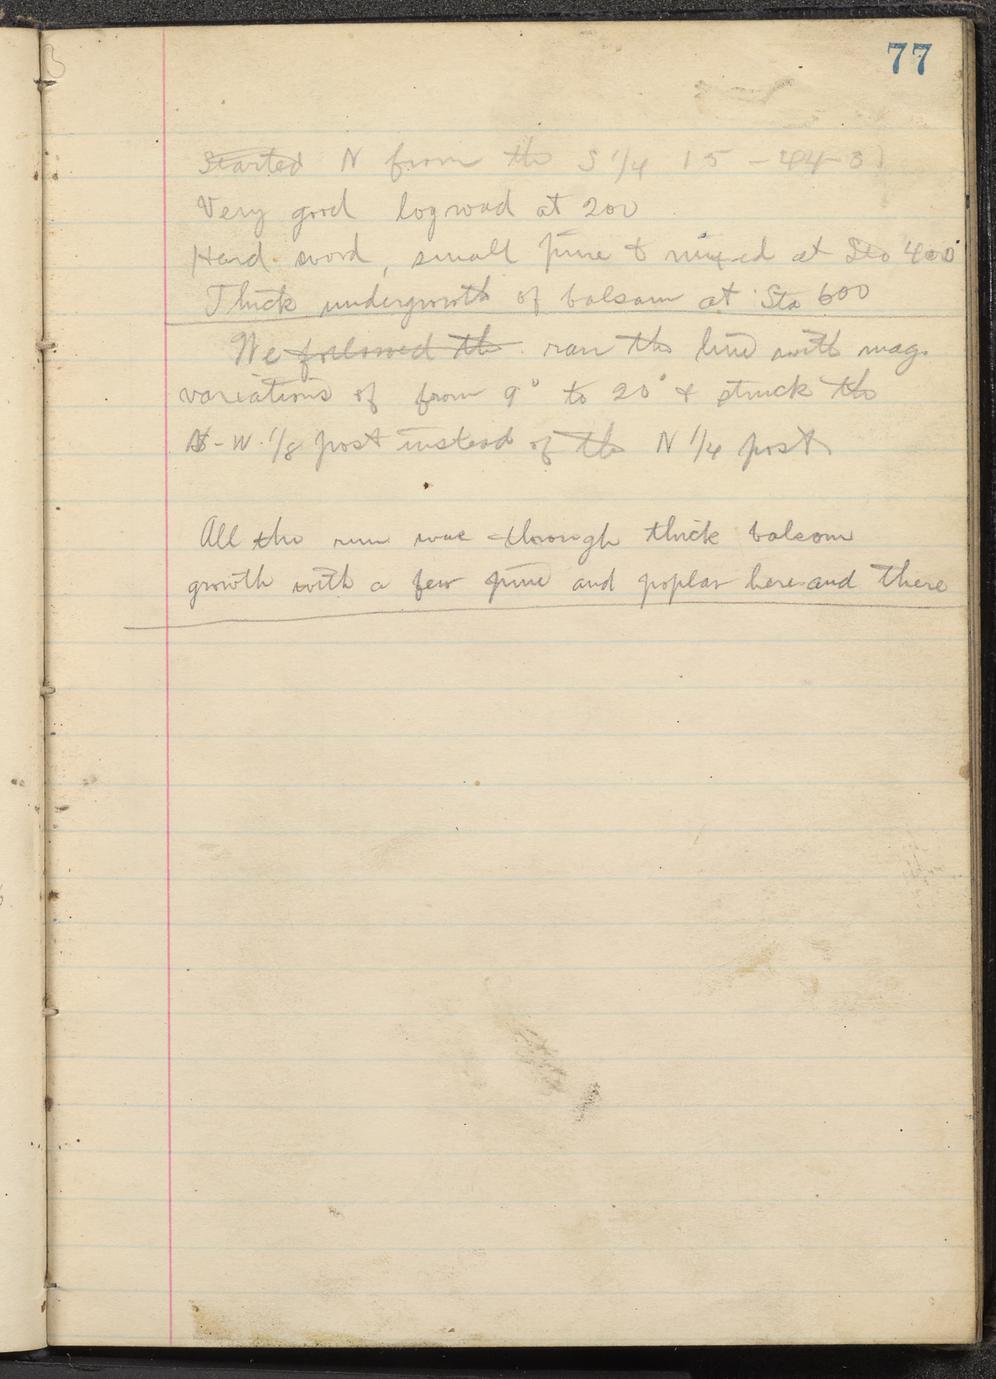 77
Started N from the S 1/4 15-44-3
Very good log road at 200
Hard wood, small pine & mixed at Sta 400
Thick undergrowth of balsam at Sta 600
We followed the ran the line with mag.
variations of from 9° to 20° & struck the
N-W. 1/8 post instead of the N 1/4 post
All the run was through thick balsam
growth with a few pine and poplar here and there